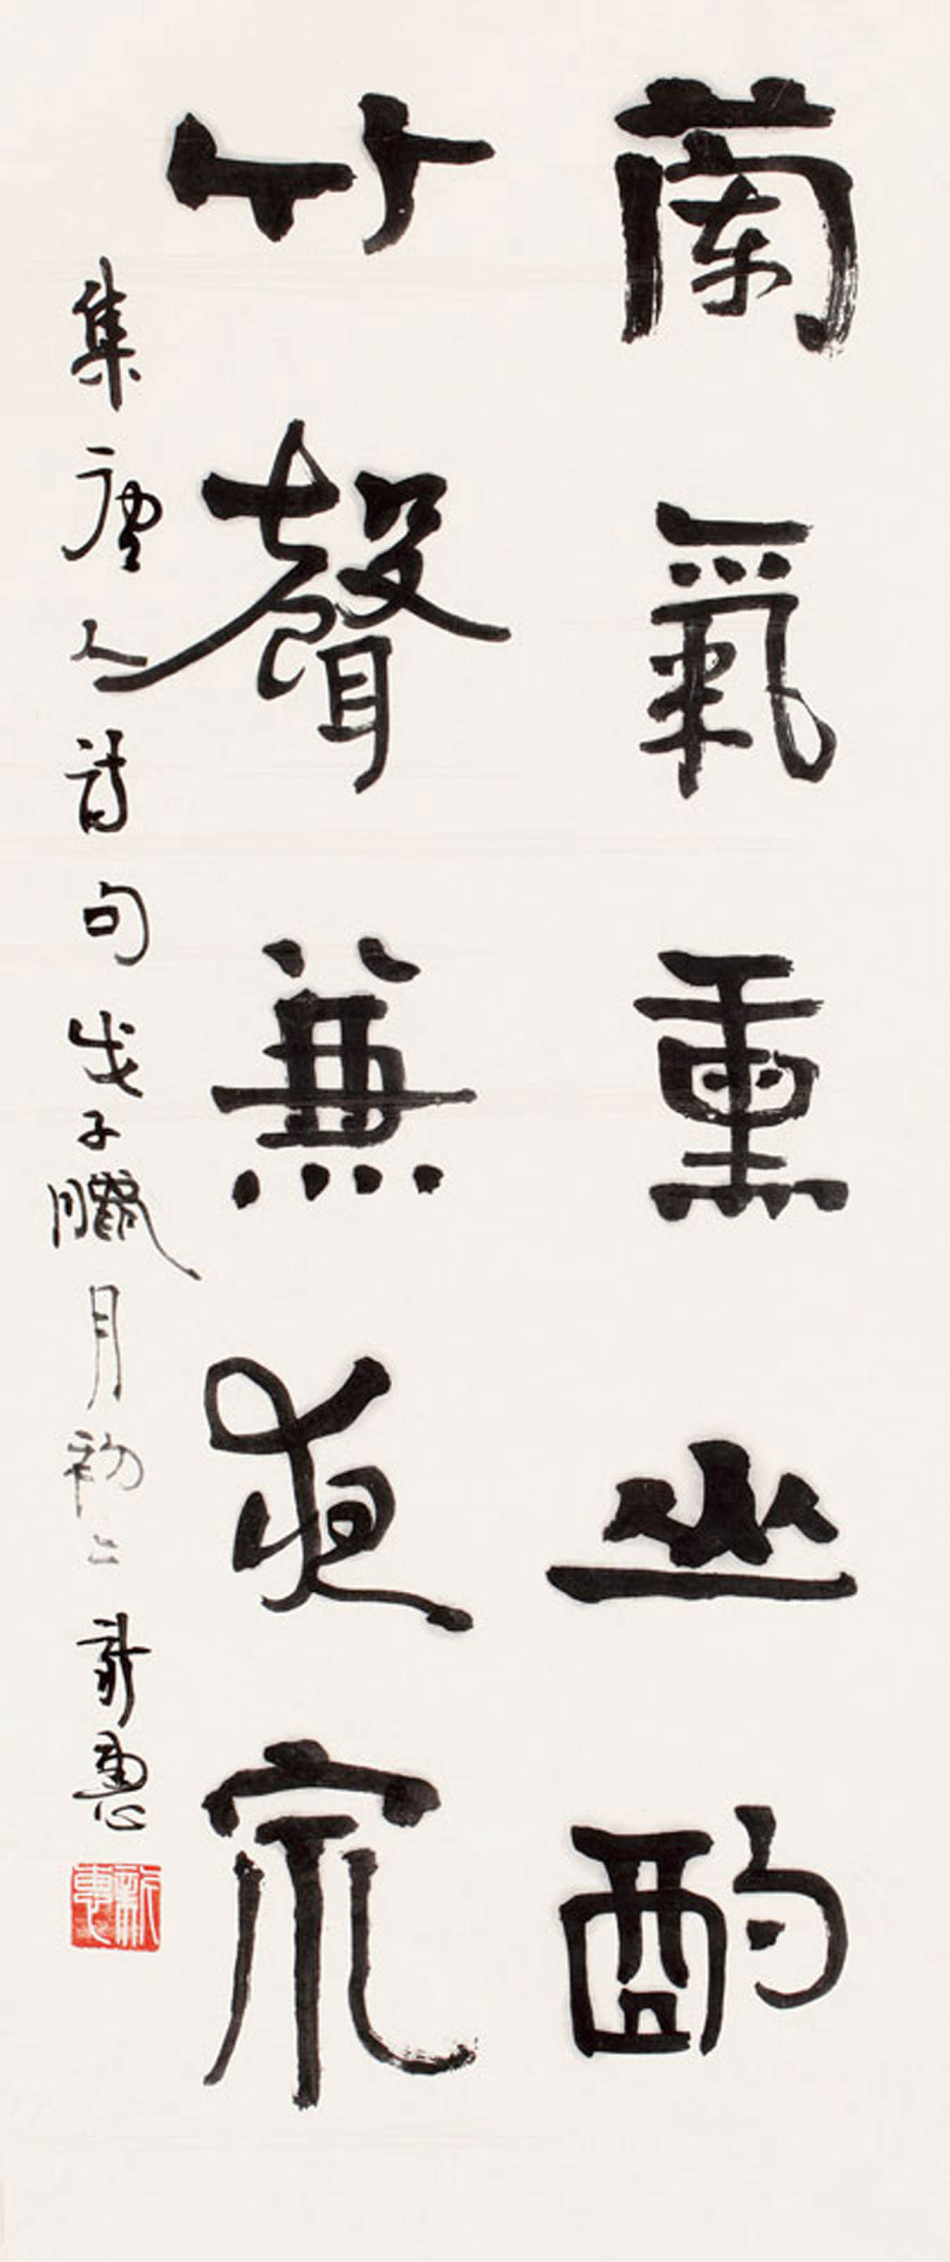 蘭氣熏山酌
竹聲兼夜泉
集唐人詩句戊子臘月初二新惠
新惠